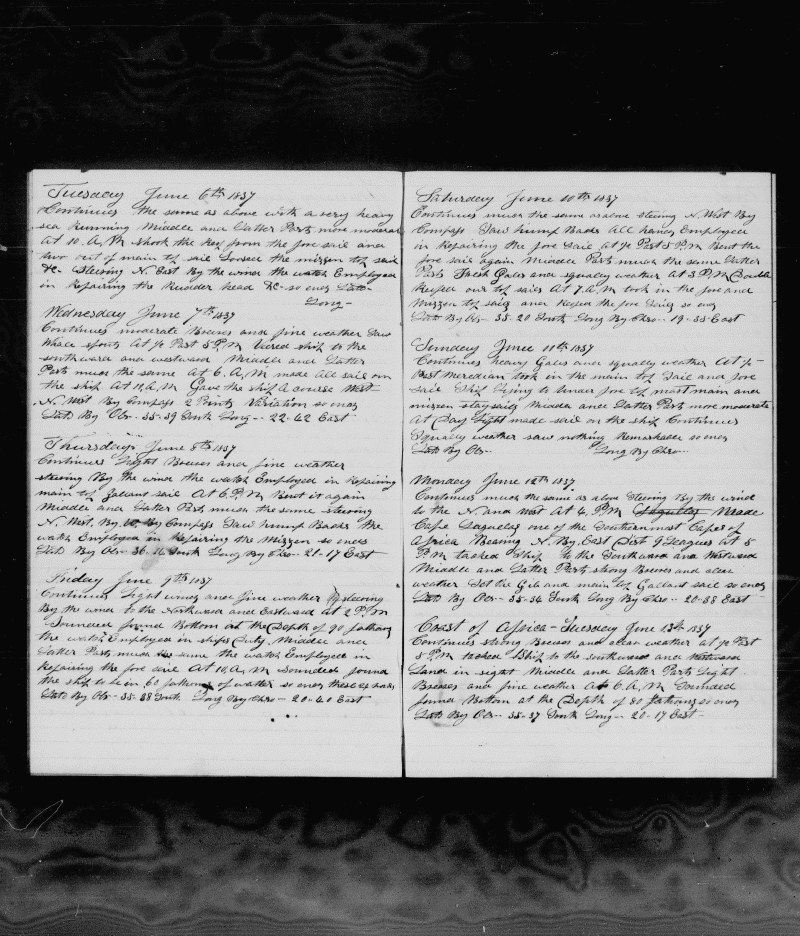 Tuesday June 6th 1837
Continues the same as above with a very heavy
sea running Middle and Latter Parts more moderate
at 10. A, M shook the reef from the fore sail and
two out of main top sail Loosed the mizzen top sail
&c- Steering N. East By the wind the watch Employed
in Repairing the Rudder head &c- so ends Lat-
Long-
Wednesday June 7th 1837
Continues moderate Breeses and fine weather Saw
Whale spouts At ½ Past 5 P.M Veered ship to the
southward and westward Middle and Latter
Parts much the same At 6. A, M made All sail on
the ship At 11, A, M Gave the ship A course West
N. West By Compass 2 Points Variation so ends
Latd By Obs-- 35-39 South Long-- 22-42 East
Thursday June 8th 1837
Continues Light Breeses and fine weather
steering By the wind the watch Employed in repairing
main top Gallant sail At 6, P, M Bent it again
Middle and Latter Parts much the same steering
N. West, By Compass Saw hump Backs the
watch Employed in Repairing the Mizzen so ends
Latd By Obs- 36-16 South Long By Chro-- 21-17 East
Friday June 9th 1837
Continues Light winds and fine weather steering
By the wind to the Northward and Eastward at 2 P. M
Sounded found Bottom at the Depth of 90 fathoms
the watch Employed in ships Duty, Middle and
Latter Parts much the same the watch Employed in
Repairing the fore sail At 10 A, M Sounded found
the ship to be in 60 fathoms of watter so ends these 24 hours
Latd By Obs-- 35-38 South Long By Chro- 20-40 East
Saturday June 10th 1837
Continues much the same as above steering N. West By
Compass Saw hump Backs All hands Employed
in Repairing the fore sail At ½ Past 5 P. M Bent the
fore sail again Middle Parts much the same Latter
Parts Fresh Gales and squally weather at 3 P, M Double
Reefed our top sails At 7. A, M took in the fore and
Mizzen top sails and Reefed the fore sail so ends
Latd By Obs- 35-20 South Long By Chro-- 19-35 East
Sunday June 11th 1837
Continues heavy Gales and squally weather At ½-
Past Meredian took in the main top Sail and fore
sail Ship Lying to Under fore top mast main and
mizzen staysails Middle and Latter Parts more moderate
At Day Light made sail on the ship Continues
Squally weather saw nothing Remarkable so ends
Latd By Obs-- Long By Chro--
Monday June 12th 1837
Continues much the same as above Steering By the wind
to the N. and West At 4, P, M Laguelus Made
Cape Laguelas one of the Southernmost Capes of
Africa Bearing N. By, East Dist 9 Leagues At 5
P. M tacked ship to the Southward and Westward
Middle and Latter Parts strong Breeses and clear
weather Set the Gib and main top Gallant sail so ends
Latd By Obs-- 35-34 South Long By Chro-- 20-38 East-
Coast of Africa-Tuesday June 13th 1837
Continues strong Breeses and clear weather at ½ Past
5 P, M tacked Ship to the southward and Westward
Land in sight Middle and Latter Parts Light
Breeses and fine weather At 6, A, M Sounded
found Bottom at the Depth of 80 fathoms so ends
Latd By Obs-- 35-37 South Long-- 20-17 East-